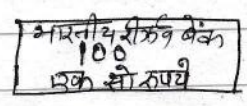 भारतीय रीजर्व बैंक
100
एक सो रुपये